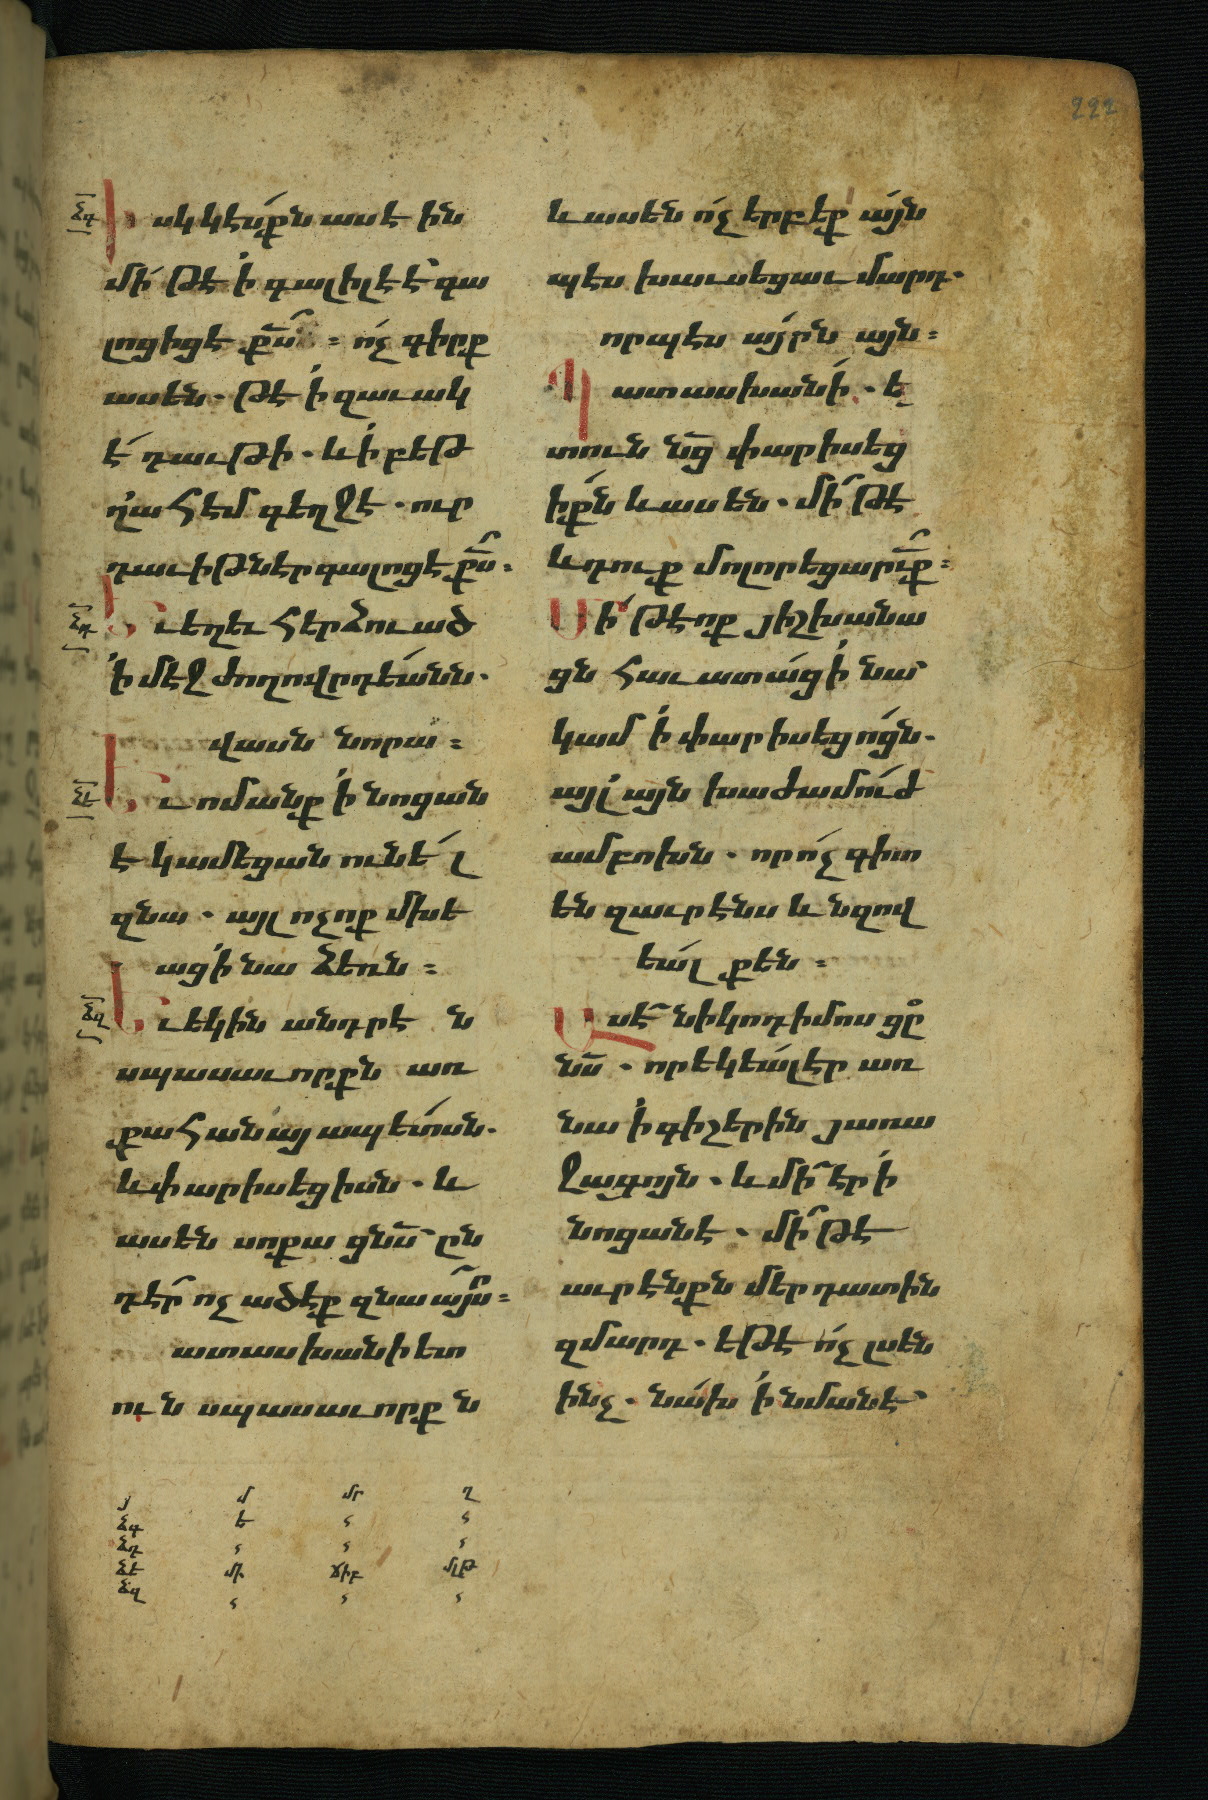 222
ՃԳ
Իսկ կէսքն ասէին
մի՛ թէ ՛ի գալիլեէ՞ գա
լոցիցէ ք̅ս ։ ո՛չ գիրք
ասեն . թէ ՛ի զաւակ
է՛ դաւթի . և ՛ի բեթ
ղահէմ գեղջէ . ուր
դաւիթն էր գալոցէ ք̅ս ։
ՃԴ
Եւ եղեւ հերձուած
՛ի մէջ ժողովրդեանն .
վասն նորա ։
ՃԵ
Եւ ոմանք ՛ի նոցան
է կամեցան ունել
զնա . այլ ոչ ոք մխե
աց ՛ի նա ձեռն ։
ՃԶ
Եւ եկին անդրէն
սպասաւորքն առ
քահանայապետսն .
և փարիսեցիսն . և
ասեն սոքա ցն̅ս ըն
դէ՞ր ոչ ածէք զնա այսր ։
ատասխանի ետ
ուն սպասաւորքն
և ասեն ո՛չ երբէք այն
պէս խաւսեցաւ մարդ .
որպէս այրն այն ։
Պատասխանի . ե
տուն ն̅ց փարիսեց
իքն և ասեն . մի՞ թէ
և դուք մոլորեցարուք ։
Մի՛ թէ ոք յիշխանա
ցն հաւատաց ՛ի նա՞
կամ ՛ի փարիսեցոցն .
այլ այն խաժամուժ
ամբոխն . որ ո՛չ գիտ
են զաւրէնս և նզով
եալ քեն ։
Ասէ նիկոդիմոս ցը
ն̅ս . որ եկեալ էր առ
նա ՛ի գիշերին յառա
ջագոյն . և մի էր ՛ի
նոցանէ . մի՞ թէ
աւրէնքն մեր դատին
զմարդ . եթէ ո՛չ լսեն
ինչ . նախ ՛ի նմանէ՞
յ մ մր ղ
ՃԳ ե
ՃԴ
ՃԵ ՃԻԲ
ՃԶ